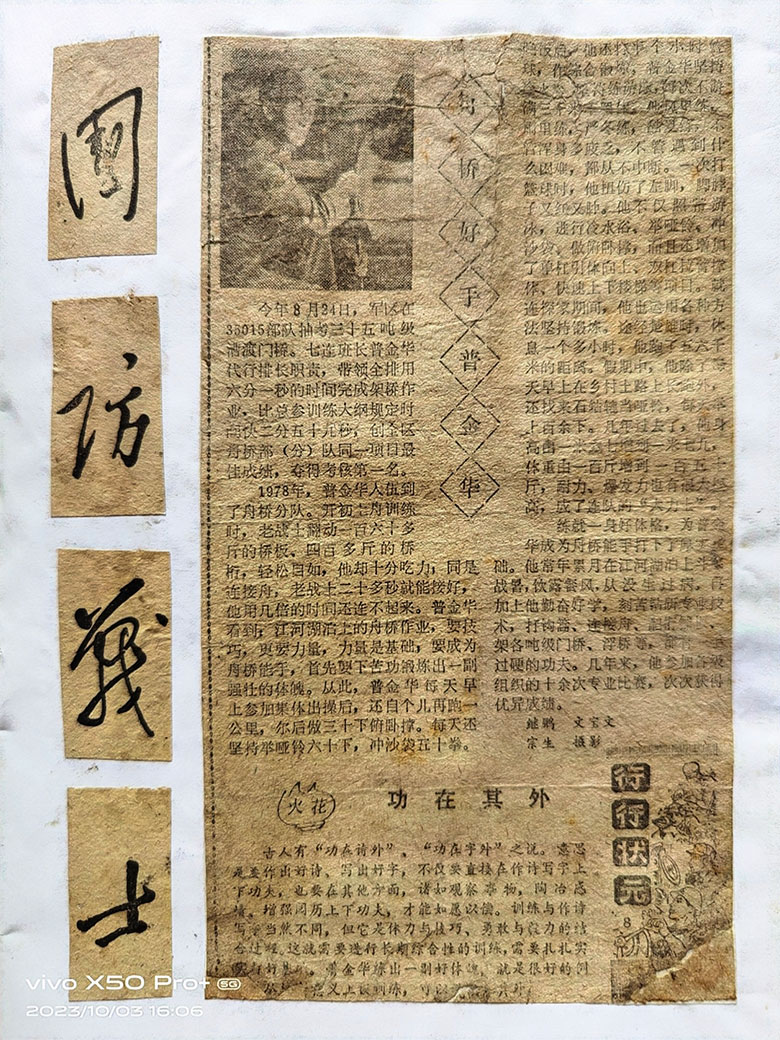 國
防
戰
士
舟桥好手普金华
今年8月24日，军区在
33015部队抽考三十五吨级
漕渡门桥。七连班长普金华
代行排长职责，带领全排用
六分一秒的时间完成架桥作
业，比总参训练大纲规定时
间快二分五十九秒，创全区
舟桥部（分）队同一项目最
佳成绩，夺得考核第一名。
1978年，普金华入伍到
了舟桥分队。开初上舟训练
时，老战士翻动一百六十多
斤的桥板、四百多斤的桥
桁，轻松自如，他却十分吃力；同是
连接舟，老战士二十多秒就能接好，
他用几倍的时间还连不起来。普金华
看到，江河湖泊上的舟桥作业，要技
巧，更要力量，力量是基础，要成为
舟桥能手，首先要下苦功锻炼出一副
强壮的体魄。从此，普金华每天早
上参加集体出操后，还自个儿再跑一
公里，尔后做三十下俯卧撑。每天还
坚持举哑铃六十下，冲沙袋五十拳。
球，作综合锻炼。普金华坚持
管浑身多疲乏，不管遇到什
么困难，都从不中断。一次打
篮球时，他扭伤了左脚，脚脖
子又红又肿。他不仅照常游
泳，进行冷水浴、举哑铃、冲
沙袋、做俯卧撑，而且还增加
了单杠引体向上、双杠臂撑
体、快速上下楼梯等项目。就
连探家期间，他也运用各种方
法坚持锻炼。途经昆明时，休
息一个多小时，他跑了五六千
米的距离。假期中，他除了每
天早上在乡村土路上长跑外，
还找来石锁当哑铃，每天举
上百余下。几年过去了，他身
高由一米六七增到一米七九，
体重由一百斤增到一百五十
斤，耐力、爆发力也有很大提
高，成了连队的“大力士”。
练就一身好体格，为普金
华成为舟桥能手打下了坚实基
础。他常年累月在江河湖泊上斗酷
战暑，饮露餐风，从没生过病，再
加上他勤奋好学，刻苦钻研专业技
术，打钩篙、连接舟、
架各吨级门桥、浮桥等，都有一手
过硬的功夫。几年来，他参加各级
组织的十余次专业比赛，次次获得
优异成绩。
继鹏 文宝文
宗生 摄影
火花
功在其外
古人有“功在诗外”、“功在字外”之说。意思
是要作出好诗、写出好字，不仅要直接在作诗写字上
下功夫，也要在其他方面，诸如观察事物，陶冶感
情，增强阅历上下功夫，才能如愿以偿。训练与作诗
写字当然不同，但它是体力与技巧、勇敢与毅力的结
合过程，这就需要进行长期综合性的训练，需要扎扎实
实打好基础。普金华练出一副好体魄，就是很好的例
行行状元
8
vivo X50 Pro+ 5G
2023/10/03 16:06